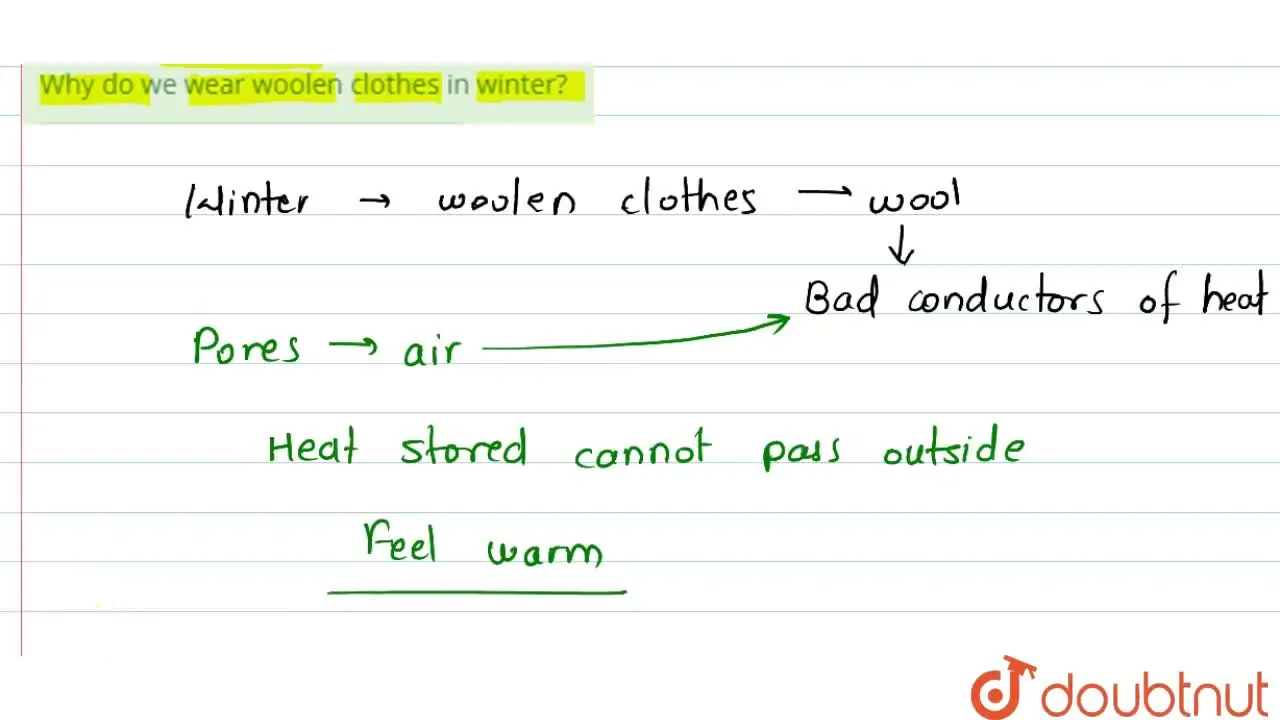 Why do we wear woolen clothes in winter?
Winter → woolen clothes → wool
↓
Bad conductors of heat
Pores → air →
Heat stored cannot pass outside
Feel warm
doubtnut